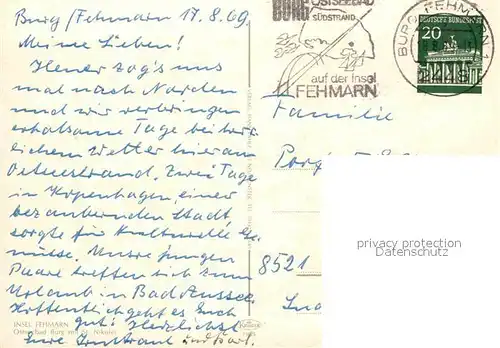 Burg/Fehmarn 17.8.69.
Meine Lieben!
Heuer zog's uns
mal nach Norden
und wir verbringen
erholsame Tage bei herr-
lichem Wetter hier am
Ostseestrand. Zwei Tage
in Kopenhagen, einer
bezaubernden Stadt,
sorgte für kulturelle Ge-
nüsse. Unsre jungen
Paare treffen sich zum
Urlaub in Bad Aussee.
Hoffentlich geht es Euch
gut! Herzlichst
Eure und Karl.
INSEL FEHMARN
Ostseebad Burg mit St. Nikolai
BURG OSTSEEBAD
SÜDSTRAND
auf der Insel
FEHMARN
BURG FEHMARN
DEUTSCHE BUNDESPOST
20
Familie
8521
privacy protection
Datenschutz